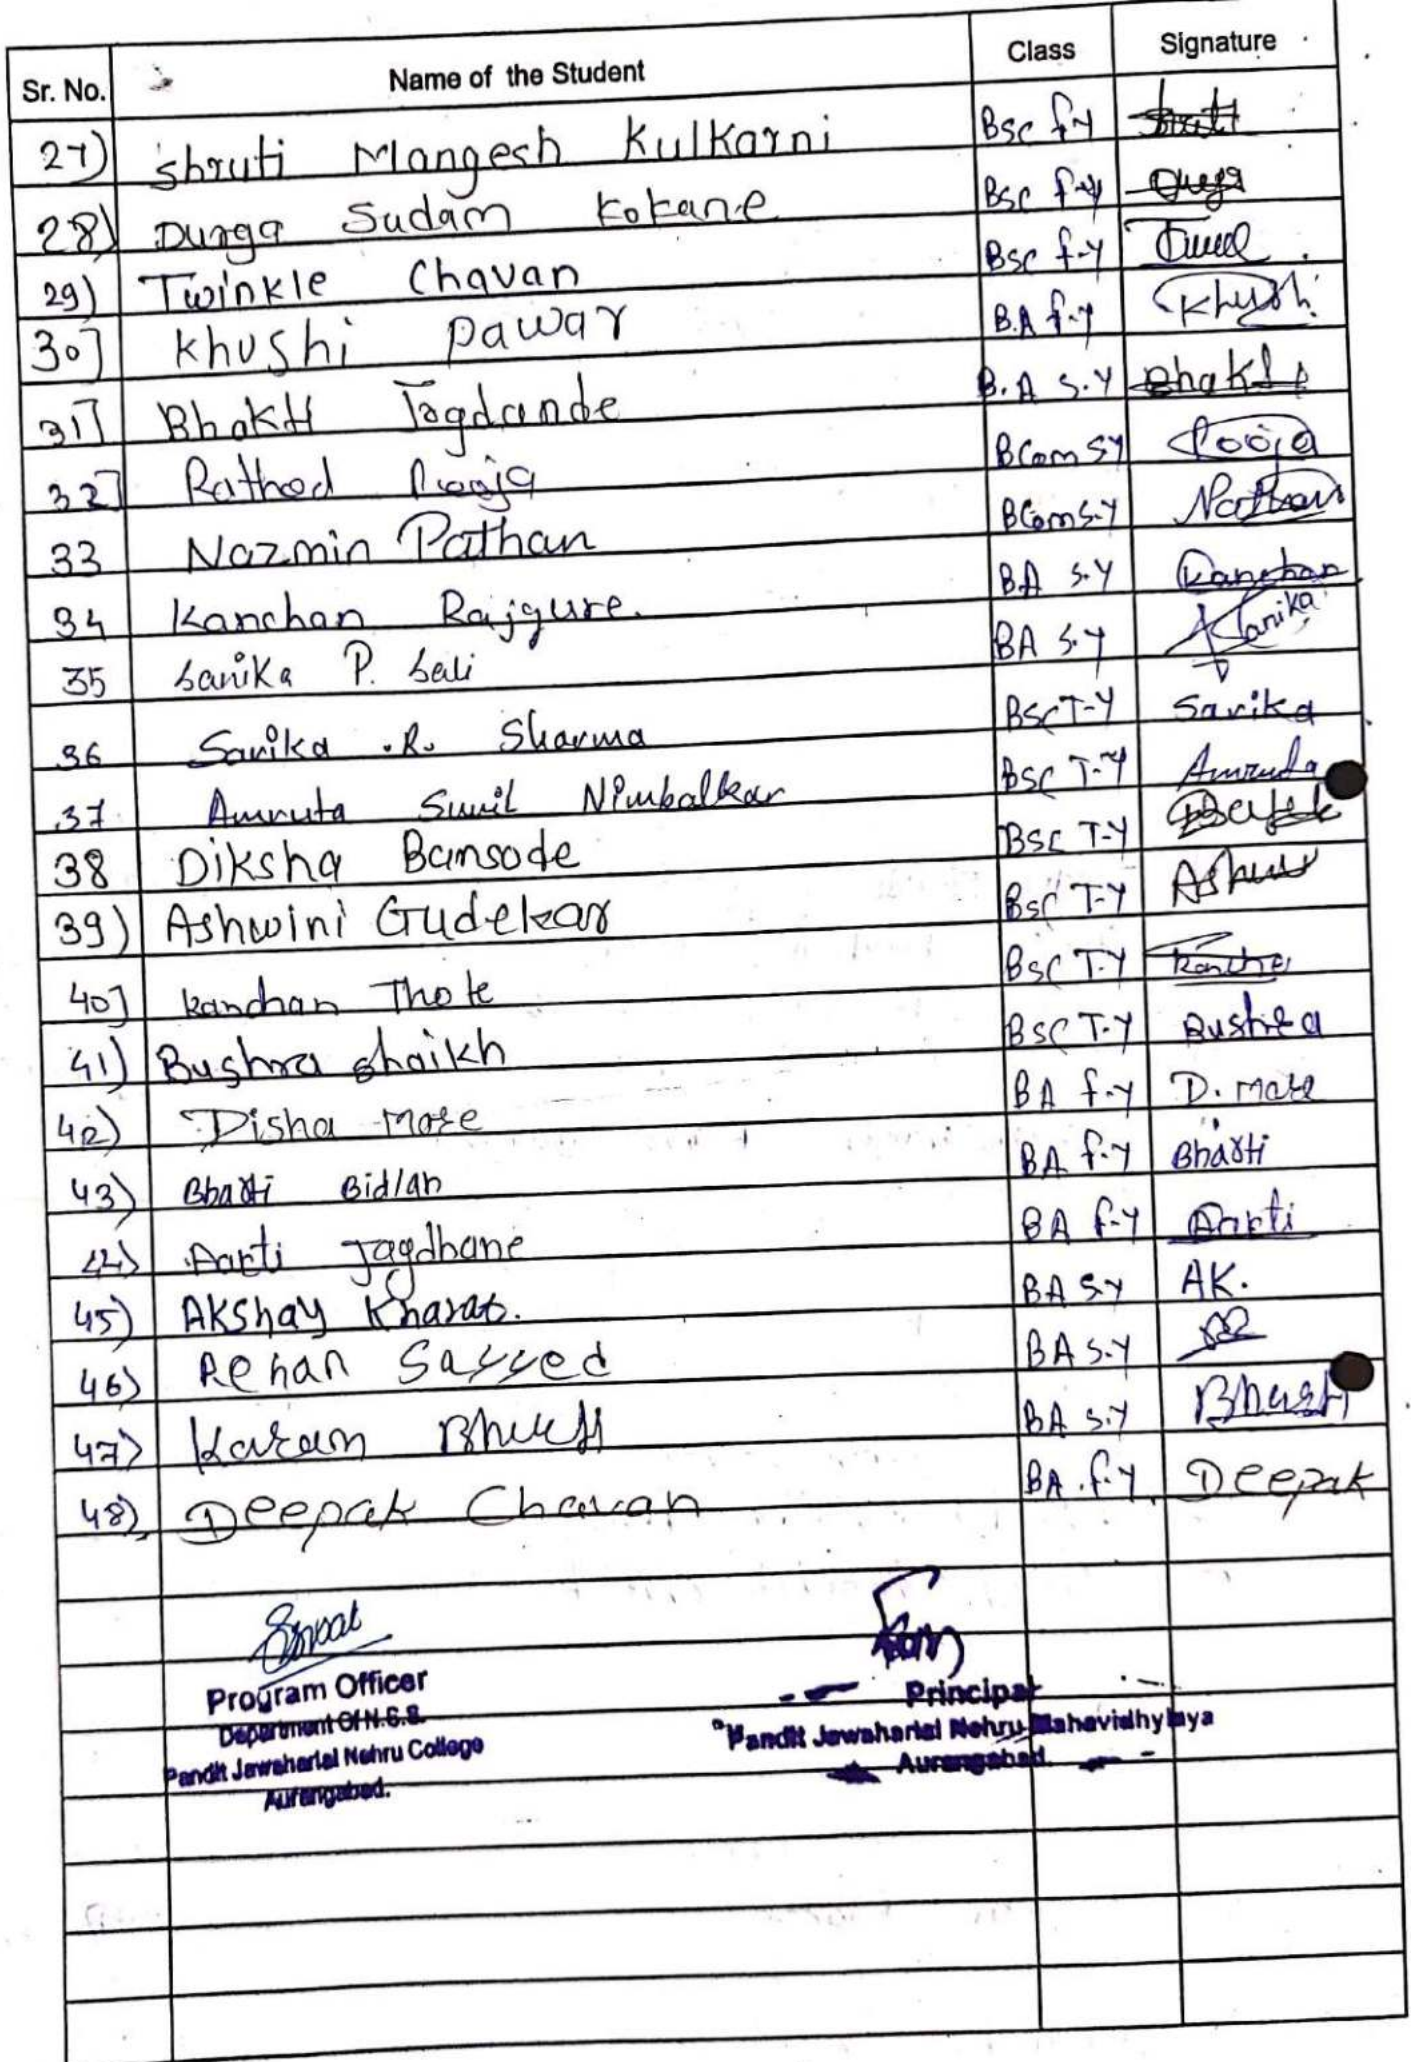 Sr. No. Name of the Student Class Signature
27) Shruti Mangesh Kulkarni Bsc f-y
28) Durga Sudam Kokane Bsc f-y
29) Twinkle Chavan Bsc f-y
30] Khushi Pawar B.A f-y Khushi
31] Bhakti B.A S.Y Bhakti
32] Rathod Pooja BCom SY Pooja
33 Nazmin Pathan BCom S-Y
34 Kanchan Rajgure. BA S-Y Kanchan
35 Sanika P. Sali BA S-y Sanika
36 Sarika .R. Sharma BSc T-Y Sarika
37 Amruta Sunil Nimbalkar BSC T-Y Amruta
38 Diksha Bansode BSC T-Y
39) Ashwini Gudekar BSC T-Y
40] Kanchan Thote BSC T-Y
41) Bushra Shaikh BSC T-Y Bushra
42) Disha More BA f-y D. More
43) Bharti Bidlan BA f-y Bharti
44) Aarti Jagdhane BA f-y Aarti
45) Akshay Kharat. BA S-y AK.
46) Rehan Sayyed BA S-Y
47) Karam BA S-Y
48) Deepak Chavan BA f-y Deepak
Program Officer
Department Of N.S.S.
Pandit Jawaharlal Nehru College
Aurangabad.
Principal
Pandit Jawaharlal Nehru Mahavidhylaya
Aurangabad.